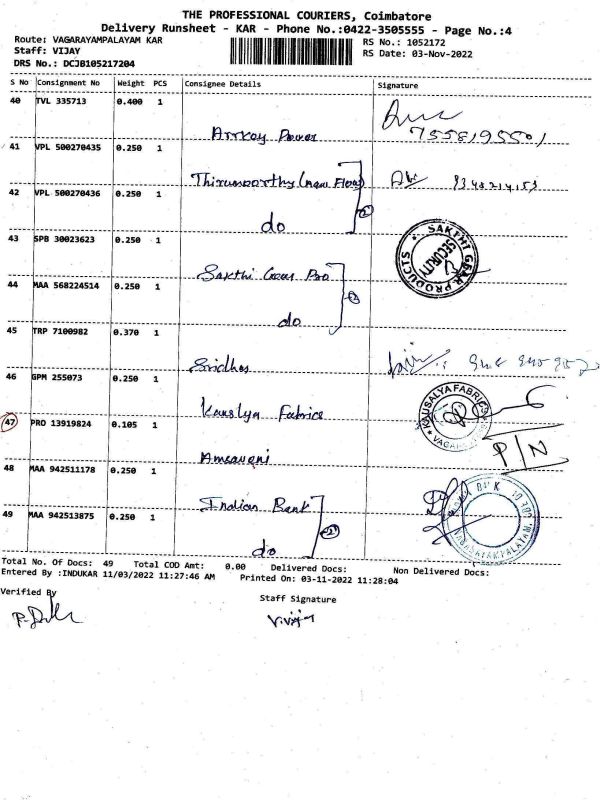 THE PROFESSIONAL COURIERS, Coimbatore
Delivery Runsheet - KAR - Phone No.:0422-3505555 - Page No.:4
Route: VAGARAYAMPALAYAM KAR
RS No.: 1052172
Staff: VIJAY
RS Date: 03-Nov-2022
DRS No.: DCJB105217204
S No Consignment No Weight PCS Consignee Details Signature
40 TVL 335713 0.400 1
Arrkay Power
7558195501
41 VPL 500270435 0.250 1
Thirumoorthy
42 VPL 500270436 0.250 1
do
2
43 SPB 30023623 0.250 1
SAKTHI GEAR PRODUCTS
SECURITY
Sakthi Gear Pro
44 MAA 568224514 0.250 1
do
2
45 TRP 7100982 0.370 1
Sridhar
46 GPM 255073 0.250 1
Kauslya Fabrics
KAUSALYA FABRICS
47 PRO 13919824 0.105 1
P/N
Amsaveni
48 MAA 942511178 0.250 1
Indian Bank
49 MAA 942513875 0.250 1
do
2
Total No. Of Docs: 49 Total COD Amt: 0.00 Delivered Docs: Non Delivered Docs:
Entered By :INDUKAR 11/03/2022 11:27:46 AM Printed On: 03-11-2022 11:28:04
Verified By
Staff Signature
V.Vijay